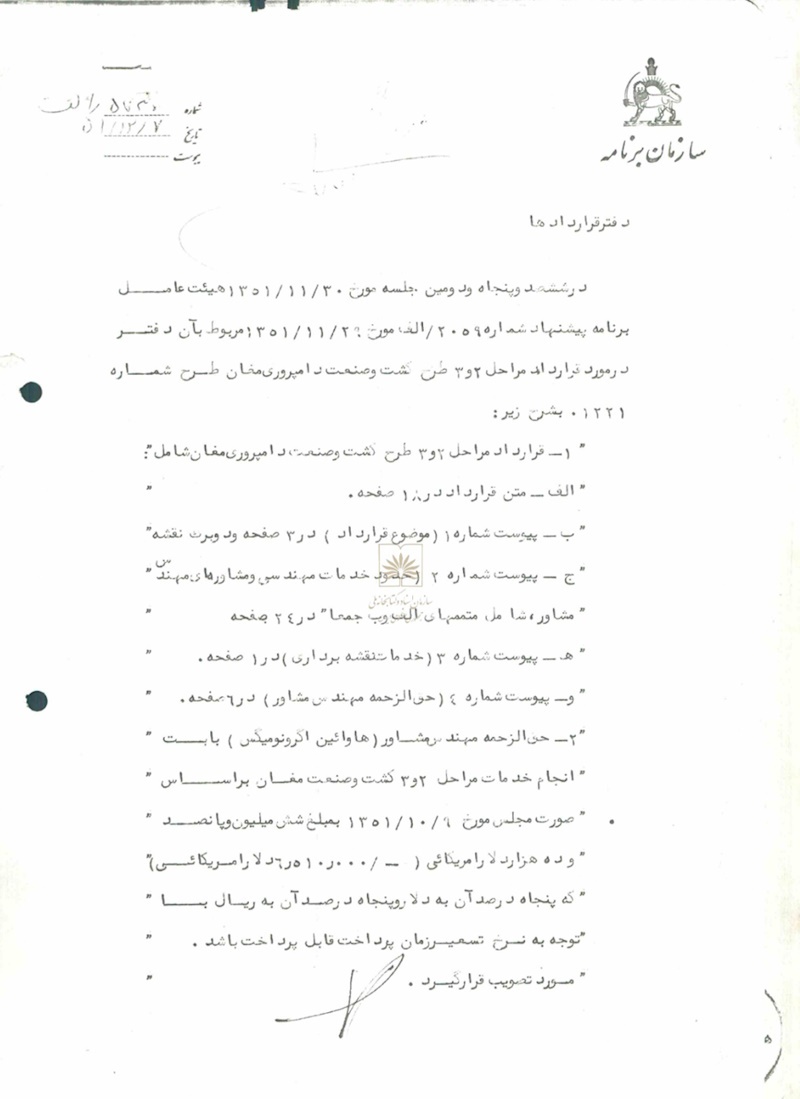 سازمان برنامه
شماره
تاریخ ۵۱/۱۲/۷
پیوست
دفتر قرارداد ها
در ششصد و پنجاه و دومین جلسه مورخ ۱۳۵۱/۱۱/۳۰ هیئت عامل
برنامه پیشنهاد شماره ۲۰۵۹/الف مورخ ۱۳۵۱/۱۱/۲۹ مربوط بآن دفتر
درمورد قرارداد مراحل ۲و۳ طرح کشت وصنعت دامپروری مغان طرح شماره
۰۱۲۲۱ بشرح زیر:
"۱ـ قرارداد مراحل ۲و۳ طرح کشت وصنعت دامپروری مغان شامل":
"الف ـ متن قرارداد در ۱۸ صفحه. "
"ب ـ پیوست شماره ۱ (موضوع قرارداد ) در۳ صفحه ودو برگ نقشه"
"ج ـ پیوست شماره ۲ (حدود خدمات مهندسی ومشاورهای مهندس"
"مشاور، شامل متممهای الف وب جمعا" در۲۴ صفحه "
"هـ ـ پیوست شماره ۳ (خدمات نقشه برداری) در۱ صفحه. "
"و ـ پیوست شماره ۴ (حق الزحمه مهندس مشاور) در۶ صفحه. "
"۲ـ حق الزحمه مهندس مشاور (هاوائین اگرونومیکس ) بابت "
"انجام خدمات مراحل ۲و۳ کشت وصنعت مغان براساس "
"صورت مجلس مورخ ۱۳۵۱/۱۰/۹ بمبلغ شش میلیون وپانصد "
"و ده هزار دلار امریکائی ( ــ/۶ر۵۱۰ر۰۰۰ دلار امریکائی)"
"که پنجاه درصد آن به دلار وپنجاه درصد آن به ریال با "
"توجه به نرخ تسعیر زمان پرداخت قابل پرداخت باشد . "
"مورد تصویب قرارگیرد . "
۵